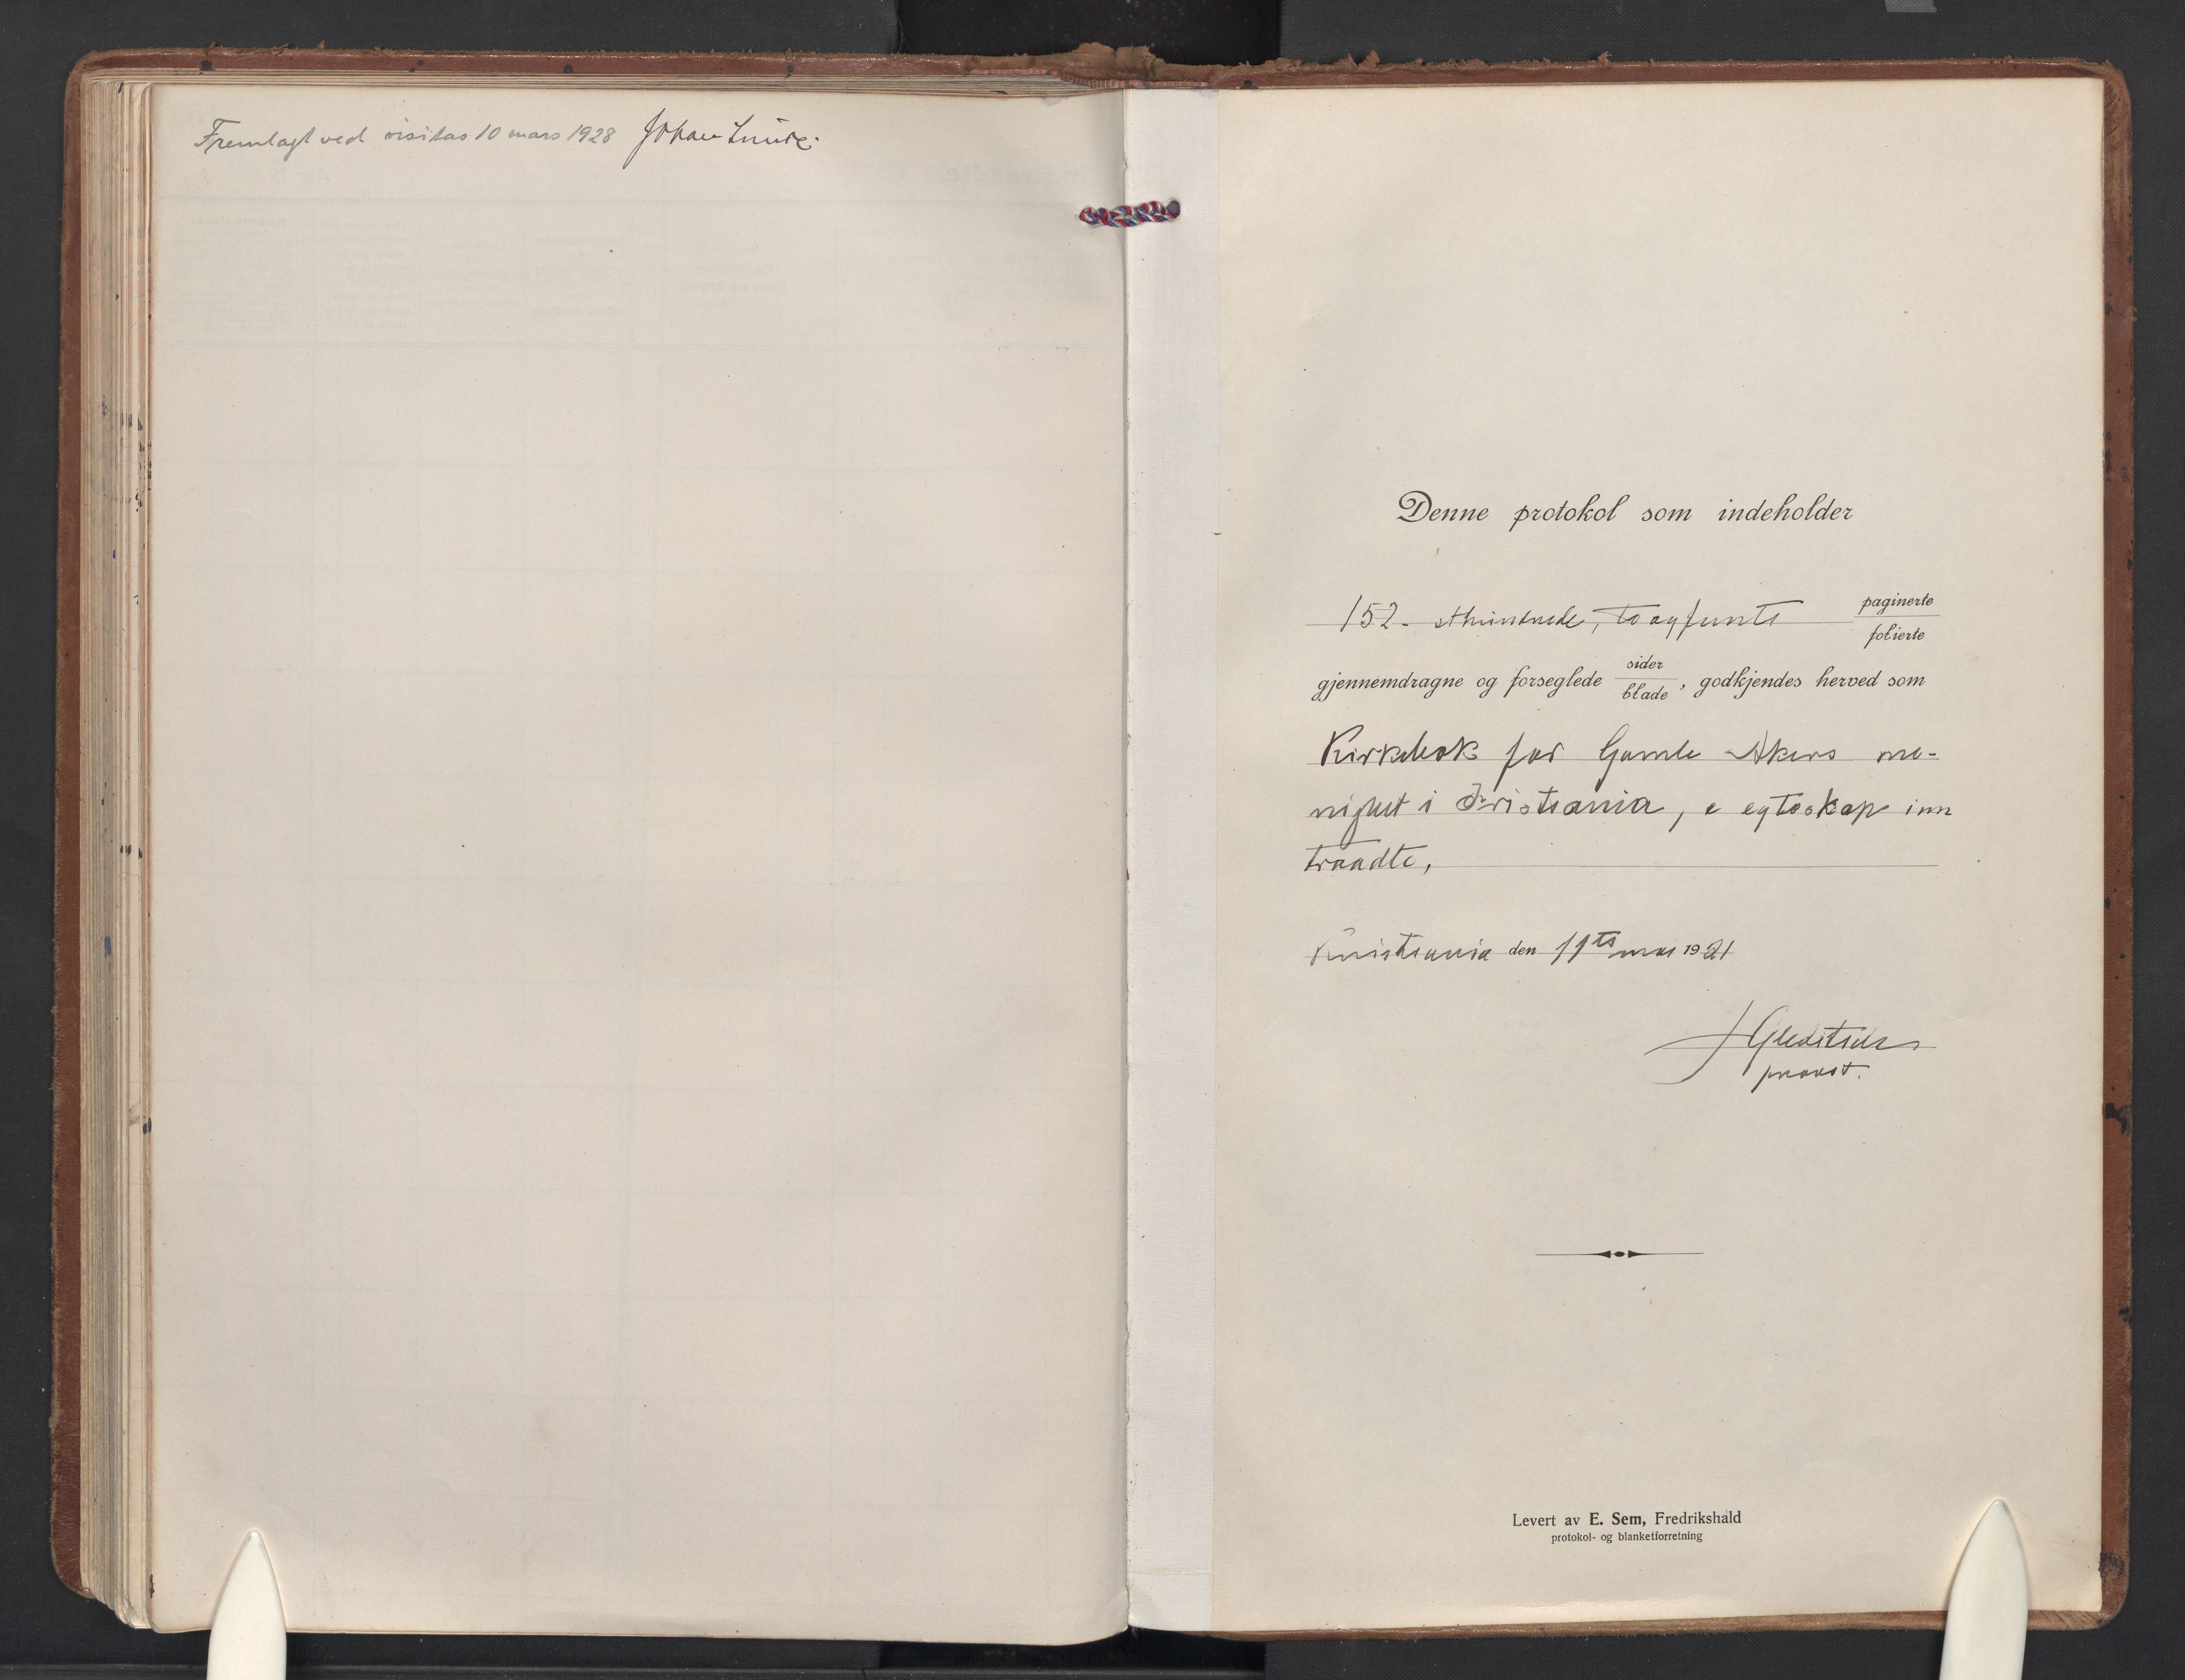 Fremlagt ved visitas 10 mars 1928 Johan Lunde.
Denne protokol som indeholder
152 - ethundrede, to og femti paginerte
folierte
gjennemdragne og forseglede sider
blade, godkjendes herved som
Kirkebok for Gamle Akers me-
nighet i Kristiania, e egteskap inn
traadte,
Kristiania den 11te mai 1921
J Gleditsch
provst.
Levert av E. Sem, Fredrikshald
protokol- og blanketforretning